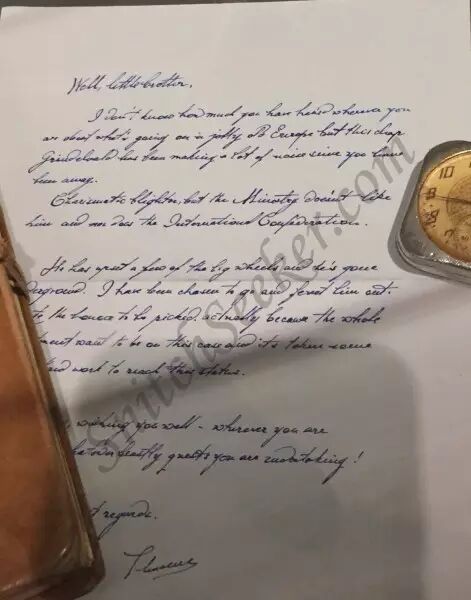 Well, little brother,
I don't know how much you have heard wherever you
are about what's going on in jolly old Europe but this chap
Grindelwald has been making a lot of noise since you have
been away.
Charismatic blighter, but the Ministry doesn't like
him and nor does the International Confederation.
He has upset a few of the big wheels and he's gone
derground. I have been chosen to go and ferret him out.
the honour to be picked, actually because the whole
ment want to be on this case and it's taken some
hard work to reach this status.
wishing you well - wherever you are
beastly quests you are undertaking!
t regards.
Theseus
SnitchSeeker.com
10
9
8